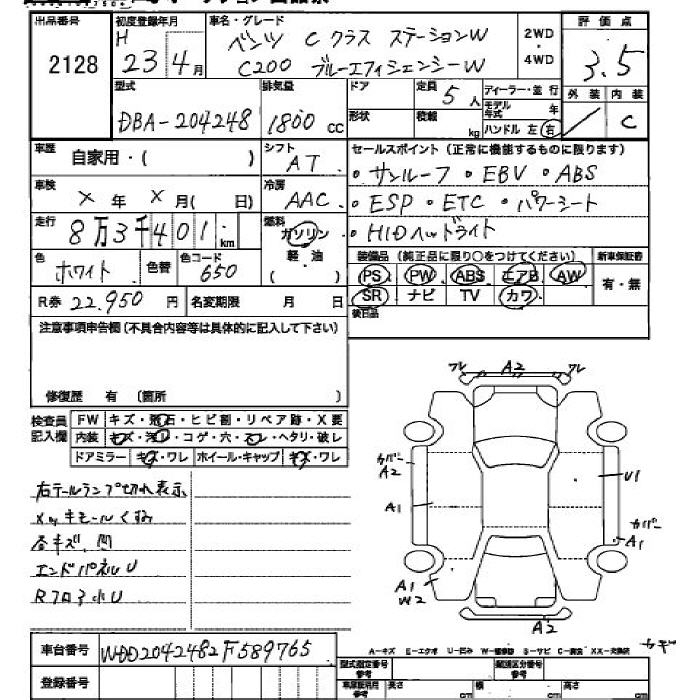 出品番号 初度登録年月 車名・グレード 評価点
2128 H 23年4月 ベンツ Cクラス ステーションW 2WD・4WD 3.5
C200 ブルーエフィシェンシーW
型式 排気量 ドア 定員 5人 ディーラー・並行 外装 内装
DBA-204248 1800cc 形状 積載 kg モデル年式 年 / C
ハンドル 左 右
車歴 自家用・( ) シフト AT セールスポイント (正常に機能するものに限ります)
車検 ×年×月( 日) 冷房 AAC ・サンルーフ ・EBV ・ABS
・ESP ・ETC ・パワーシート
走行 8万3千401km 燃料 ガソリン 軽・油 ( ) ・HIDヘッドライト
色 ホワイト 色替 色コード 650 装備品 (純正品に限り○をつけてください) 新車保証書
PS PW ABS エアB AW 有・無
R券 22.950円 名変期限 月 日 SR ナビ TV カワ
注意事項申告欄(不具合内容等は具体的に記入して下さい) 後日品
修復歴 有 (箇所 )
検査員記入欄 FW キズ・飛石・ヒビ割・リペア跡・X要
内装 キズ・汚レ・コゲ・穴・スレ・ヘタリ・破レ
ドアミラー キズ・ワレ ホイール・キャップ キズ・ワレ
ワレ A2 ワレ
カバー A2
U1
A1
カバー A1
A1 W2
A2
右テールランプ切れ表示
メッキモールくすみ
各キズ、凹
エンドパネルU
Rフロア小U
車台番号 WDD2042482F589765
A-キズ E-エクボ U-凹み W-補修跡 S-サビ C-腐食 XX-交換済
登録番号 型式指定番号 参考 類別区分番号 参考
長さ cm 幅 cm 高さ cm